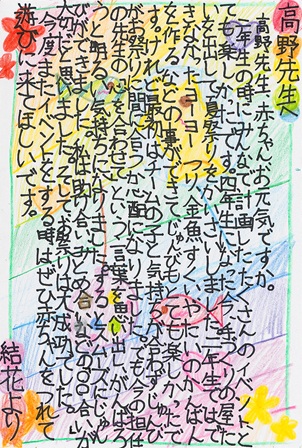 高野先生へ
高野先生、赤ちゃん、お元気ですか。
二年生の時にみんなで計画したたくさんのイベントと
ても楽しかったです。四年生になったら手づくりの屋台
を出して夏祭りをかいさいしました。二年生では
きなかったヨーヨーつり、金魚すくい、やたいのかんばん
を作るなどの事ができてじゅんびもとても楽しかったで
す。けれど最初はチームのことと気持ちが合わずじゅんび
がお祭りに間に合うか心配になりました。でも今の担任
の先生の心を合わせてという言葉を思い出しがんばろ
うと明るい気持ちになりました。するとスムーズにじゅん
びができました。私は助け合い、まとめ合い、などの〇〇合いが
大切だと思いました。そしてお祭りは大成功でした。
今度またイベントをする時はぜひ赤ちゃんをつれて
遊びに来てほしいです。
結花より